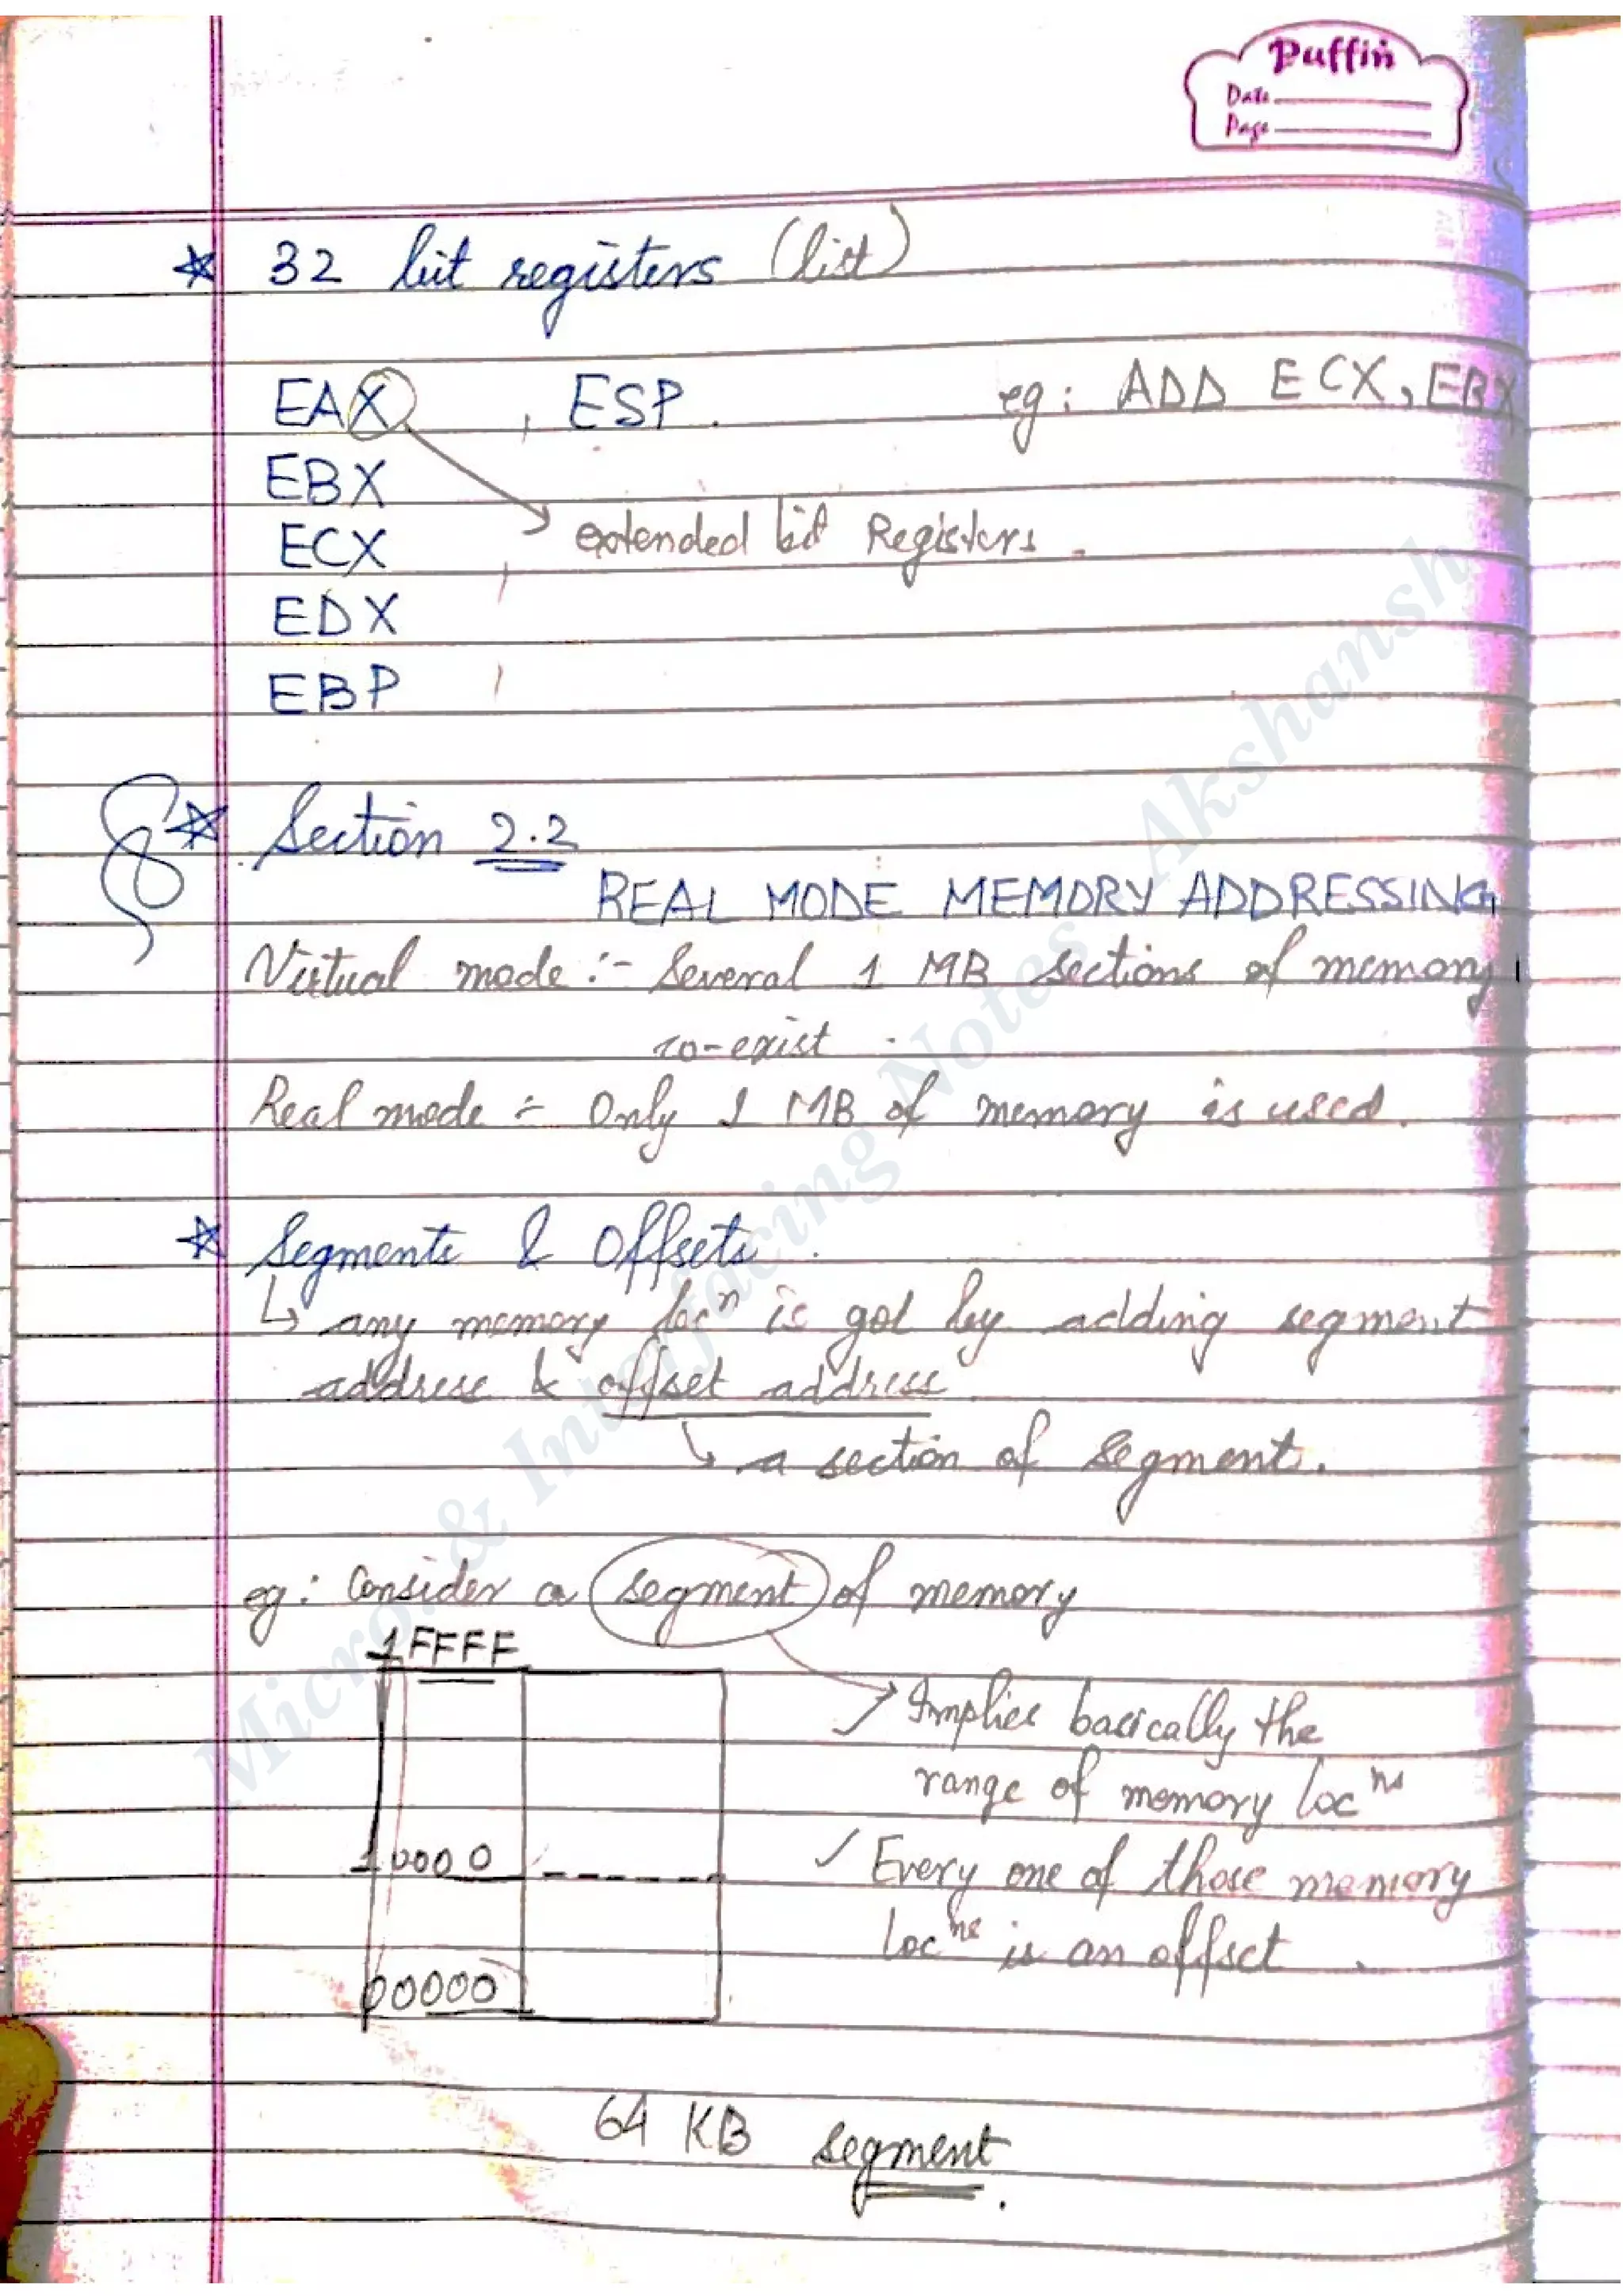 Puffin
Date
Page
* 32 bit registers (list)
EAX , ESP . eg: ADD ECX, EBX
EBX
extended bit Registers.
ECX
EDX
EBP
* Section 2.2
REAL MODE MEMORY ADDRESSING
Virtual mode :- Several 1 MB sections of memory
co-exist.
Real mode :- Only 1 MB of memory is used.
* Segments & Offsets.
↳ any memory locⁿ is got by adding segment
address & offset address.
↳ a section of segment.
eg: Consider a segment of memory
1FFFF
Implies basically the
range of memory locⁿˢ
10000
✓ Every one of those memory
locⁿˢ is an offset.
00000
64 KB segment.
Micro. & Interfacing Notes Akshansh